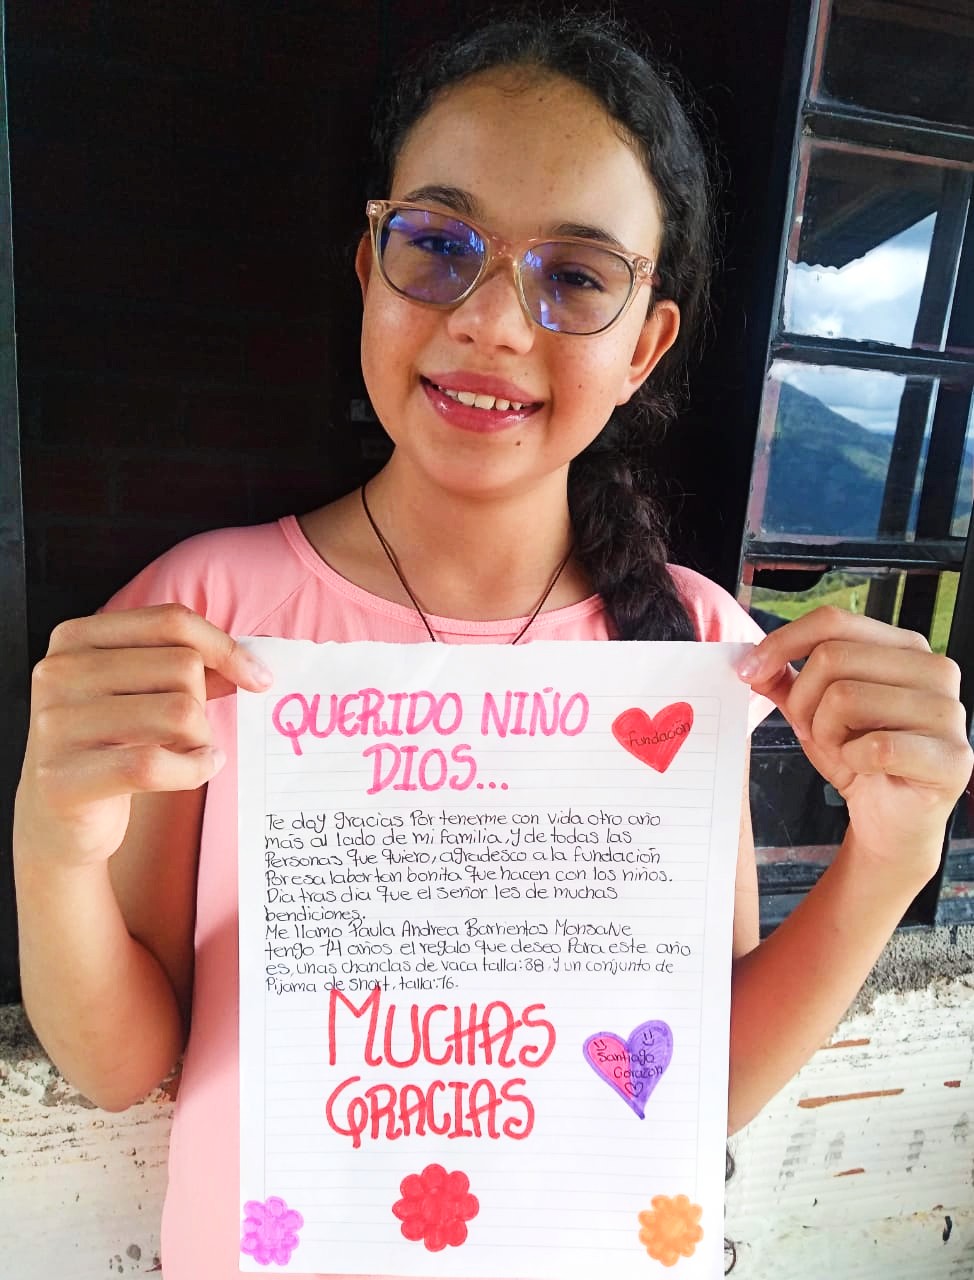 QUERIDO NIÑO
DIOS...
Fundación
Te doy gracias Por tenerme con vida otro año
más al lado de mi familia, y de todas las
Personas que quiero, agradesco a la fundación
Por esa labor tan bonita que hacen con los niños.
Dia tras dia que el señor les de muchas
bendiciones.
Me llamo Paula Andrea Barrientos Monsalve
tengo 14 años el regalo que deseo Para este año
es, unas chanclas de vaca talla:38. y un conjunto de
Pijama de short, talla:16.
MUCHAS
GRACIAS
Santiago
Corazón